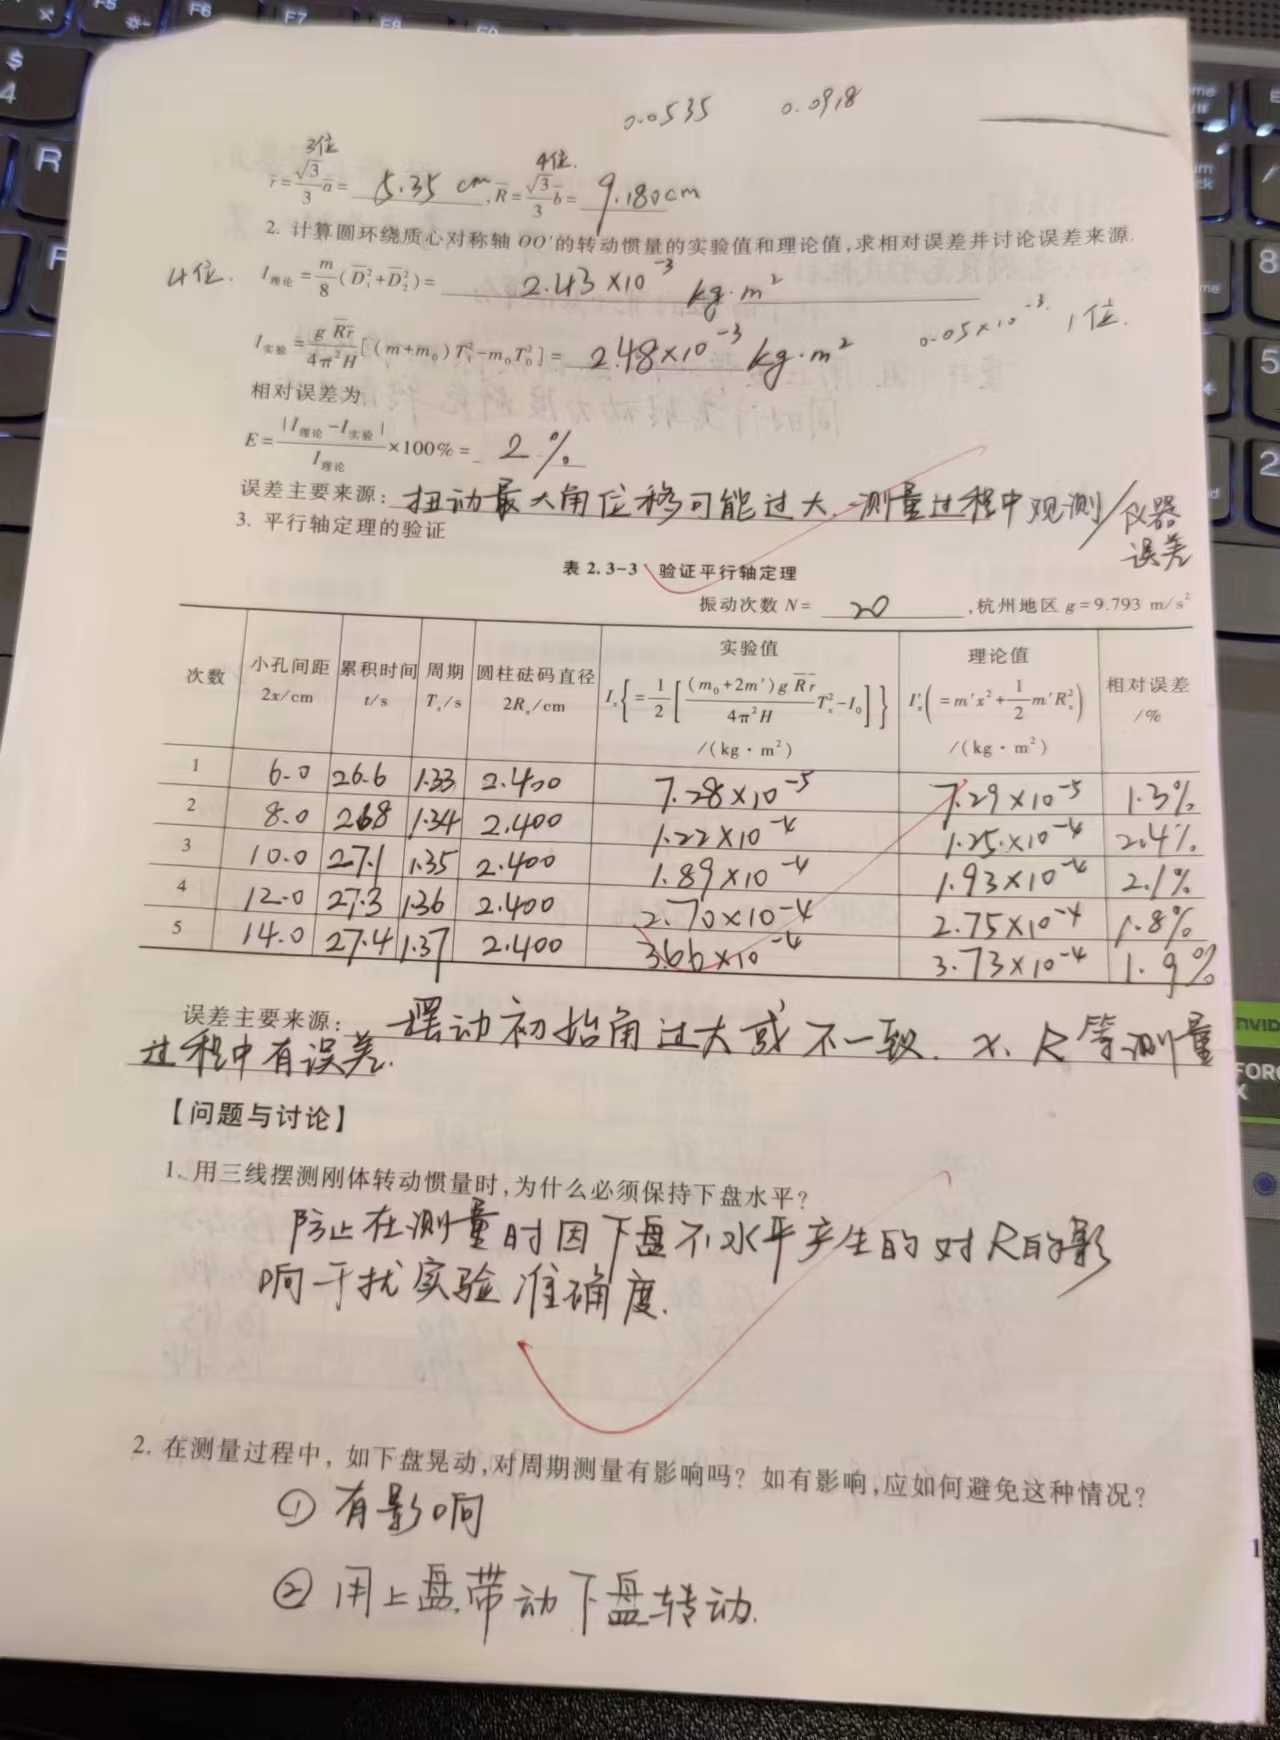 F6 F7
$
4
R
8
5
2
0.0535 0.0918
3位 4位.
r̄=√3/3 ā= 5.35 cm, R̄=√3/3 b̄= 9.180cm
2. 计算圆环绕质心对称轴 OO′的转动惯量的实验值和理论值,求相对误差并讨论误差来源.
4位. I理论=m/8(D̄₁²+D̄₂²)= 2.43×10⁻³ kg·m²
0.05×10⁻³. 1位.
I实验=gR̄r̄/4π²H[(m+m₀)T₁²-m₀T₀²]= 2.48×10⁻³ kg·m²
相对误差为
E=|I理论-I实验|/I理论×100%= 2%
误差主要来源: 扭动最大角位移可能过大、测量过程中观测/仪器
误差
3. 平行轴定理的验证
表 2.3-3 验证平行轴定理
振动次数 N= 20 ,杭州地区 g=9.793 m/s²
次数 小孔间距 2x/cm 累积时间 t/s 周期 Tₓ/s 圆柱砝码直径 2Rₓ/cm 实验值 Iₓ{=1/2[(m₀+2m′)gR̄r̄/4π²H Tₓ²-I₀]} /(kg·m²) 理论值 I′ₓ(=m′x²+1/2m′Rₓ²) /(kg·m²) 相对误差 /%
1 6.0 26.6 1.33 2.400 7.28×10⁻⁵ 7.29×10⁻⁵ 1.3%
2 8.0 26.8 1.34 2.400 1.22×10⁻⁴ 1.25×10⁻⁴ 2.4%
3 10.0 27.1 1.35 2.400 1.89×10⁻⁴ 1.93×10⁻⁴ 2.1%
4 12.0 27.3 1.36 2.400 2.70×10⁻⁴ 2.75×10⁻⁴ 1.8%
5 14.0 27.4 1.37 2.400 3.66×10⁻⁴ 3.73×10⁻⁴ 1.9%
误差主要来源: 摆动初始角过大或不一致、x、R等测量
过程中有误差.
【问题与讨论】
1. 用三线摆测刚体转动惯量时,为什么必须保持下盘水平?
防止在测量时因下盘不水平产生的对R的影
响干扰实验准确度.
2. 在测量过程中, 如下盘晃动,对周期测量有影响吗? 如有影响,应如何避免这种情况?
① 有影响
② 用上盘带动下盘转动.
1